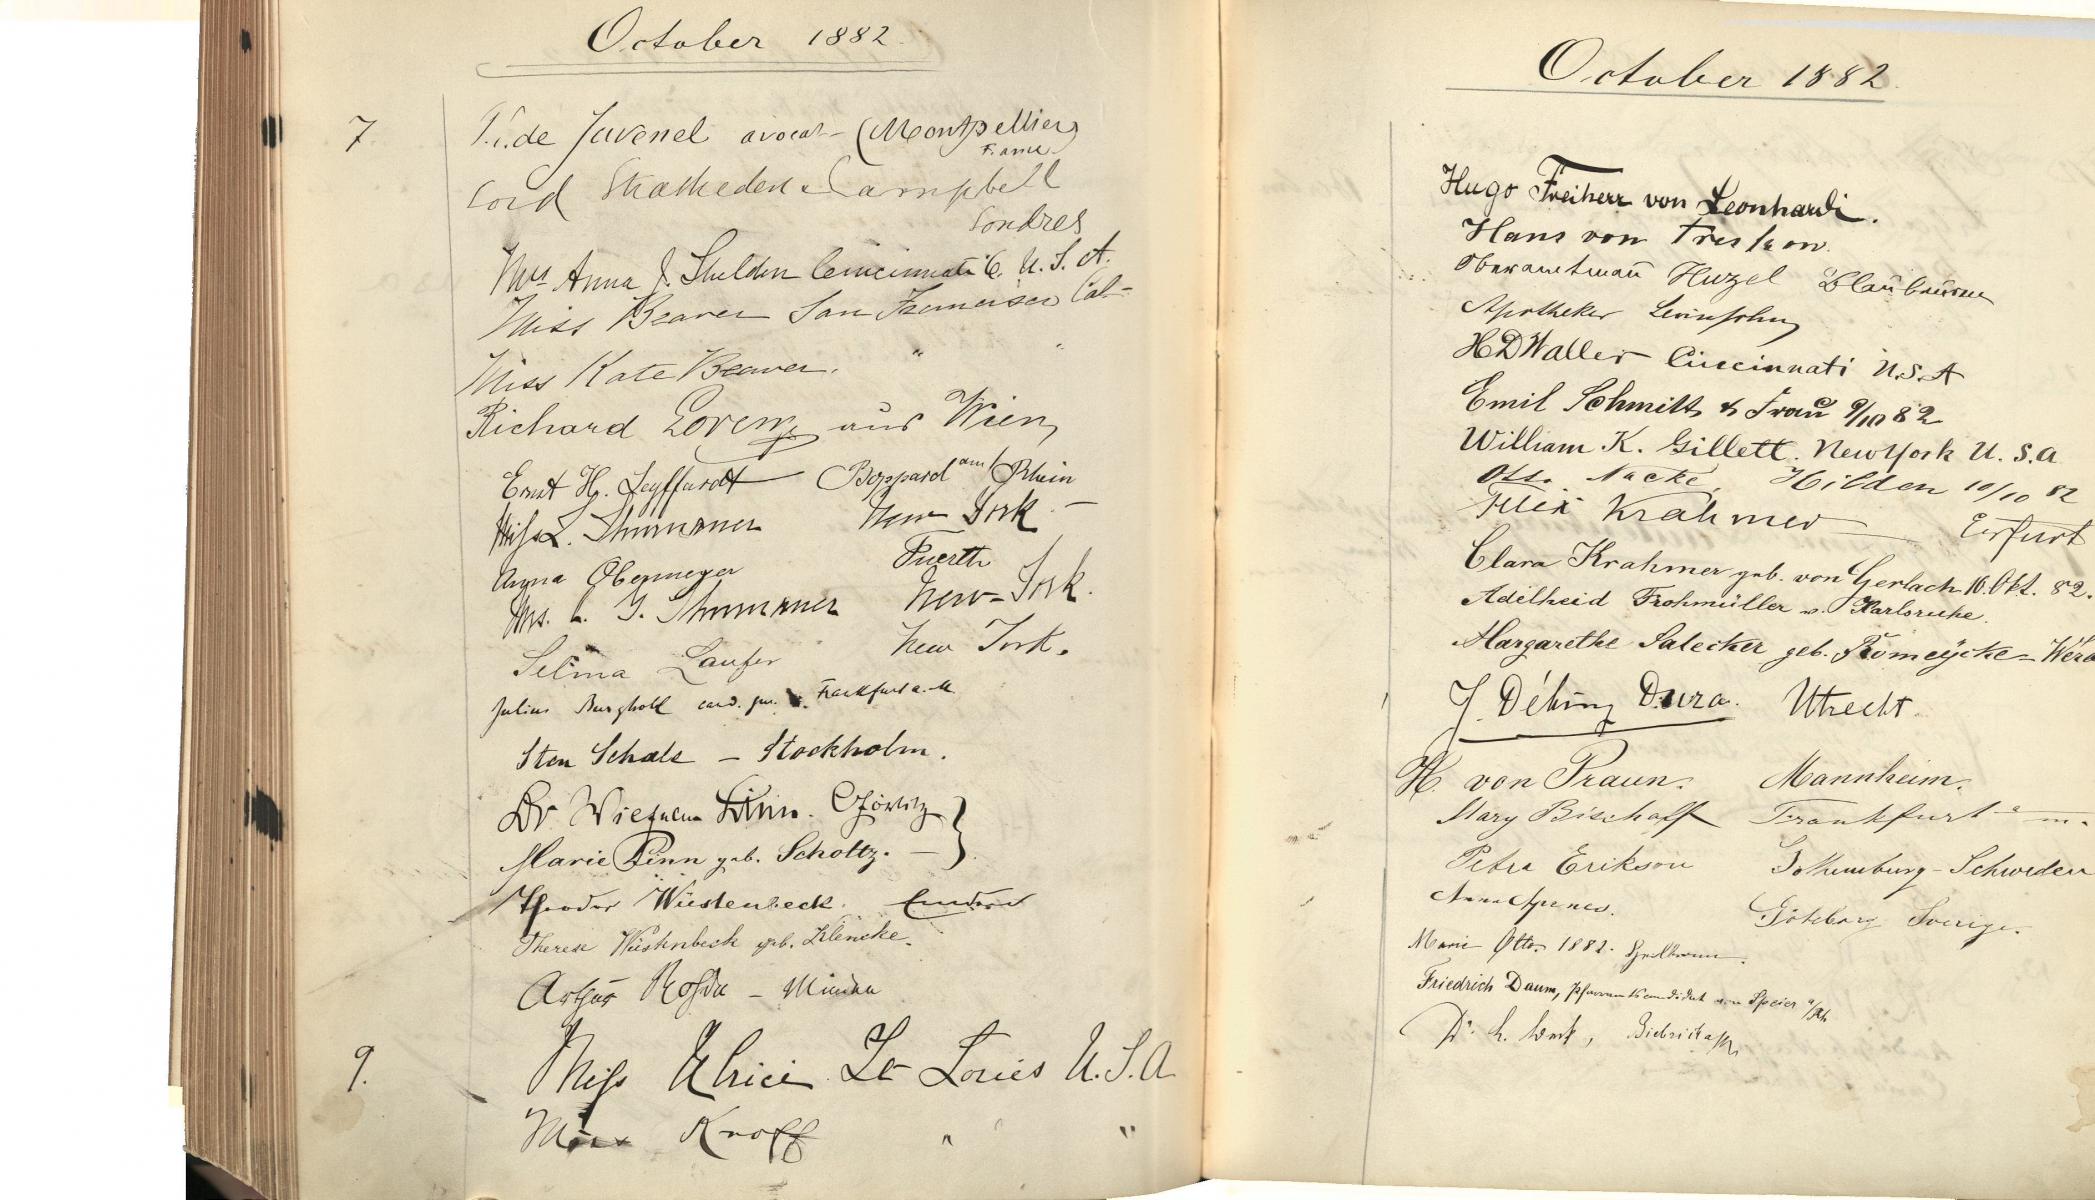 October 1882
7 de Juvenel avocat (Montpellier)
France
Lord Stratheden & Campbell
Londres
Mrs Anna J. Shelden Cincinnati O. U. S. A.
Miss Beaver San Francisco Cal-
Miss Kate Beaver. " "
Richard Lorenz aus Wien
Ernst H. Seyffardt Boppard am/Rhein
Miss L. Thurnauer New York -
Anna Obermeyer Fuerth
Mrs. L. G. Thurnauer New-York.
Selma Laufer New York.
Julius Burghold cand. jur. Frankfurt a. M
Sten Schale - Stockholm.
Dr Wilhelm Görlitz }
Marie geb. Scholtz. -
Theodor Wüstenbeck.
Therese Wüstenbeck geb. Klencke.
Arthur - Minden
9. Miss Ulrici St Louis U. S. A
Miss Knoff " " "
October 1882.
Hugo Freiherr von Leonhardi.
Hans von Treskow.
Oberamtmann Huzel Blaubeuren
Apotheker Levinsohn
H D Waller Cincinnati U.S.A
Emil Schmitt & Frau 9/10 82
William K. Gillett. New York U. S. A
Otto Nacke, Hilden 10/10 82
Felix Krahmer Erfurt
Clara Krahmer geb. von Gerlach 10. Okt. 82.
Adelheid Frohmüller v. Karlsruhe.
Margarethe Salecker geb. Romeÿcke -
J. Utrecht.
H. von Praun. Mannheim.
Mary Bischoff Frankfurt a m.
Petra Erikson Gothenburg - Schweden
Anna Göteborg Sverige.
Marie Otto. 1882. Heilbronn.
Friedrich Daum, Pfarramtskandidat von Speier a/Rh
Dr. Biebrich a/Rh